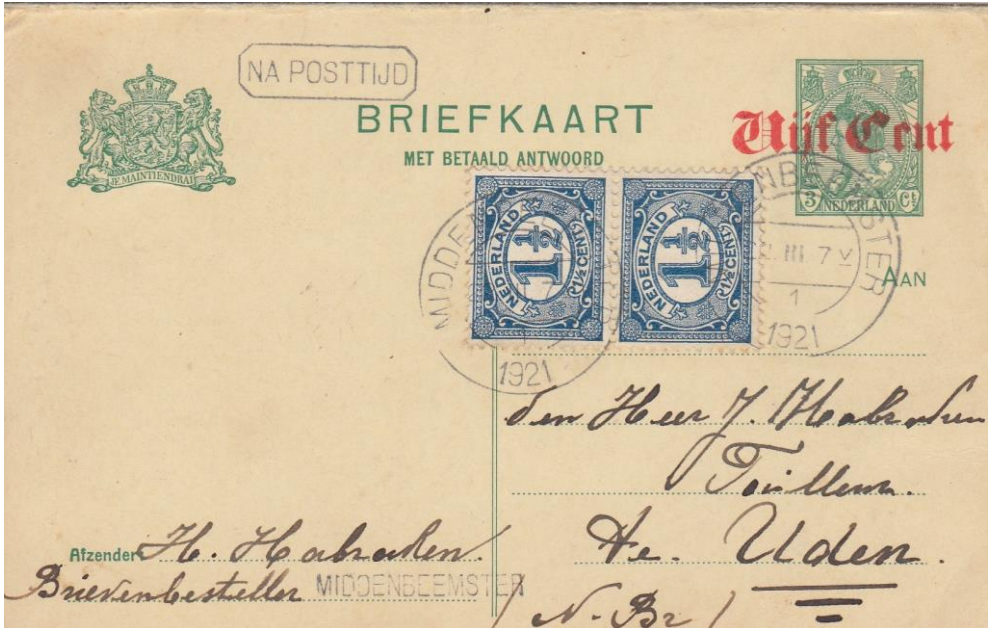 NA POSTTIJD
BRIEFKAART
MET BETAALD ANTWOORD
JE MAINTIENDRAI
Vijf Cent
3 NEDERLAND Ct
NEDERLAND
1½
1½ CENT
NEDERLAND
1½
1½ CENT
1921
III. 7 V
1
1921
AAN
den Heer J. Habraken
te. Uden.
(N-Br)
Afzender H. Habraken.
Brievenbesteller MIDDENBEEMSTER